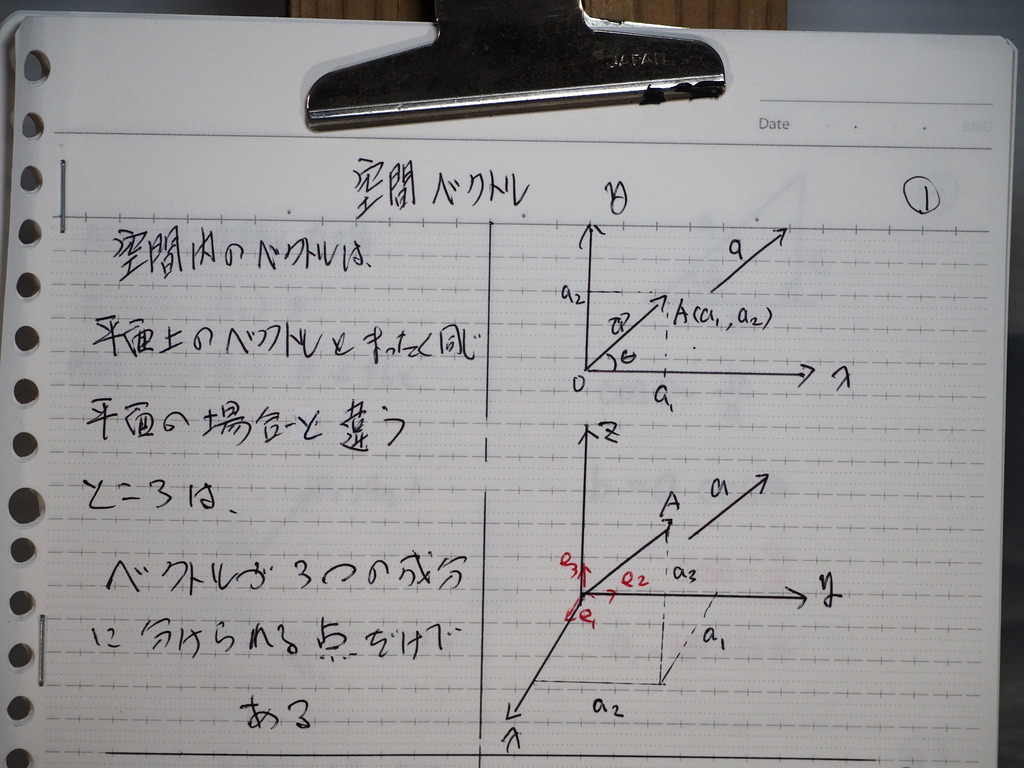 JAPAN
Date
空間ベクトル
①
空間内のベクトルは、
平面上のベクトルとまったく同じ
平面の場合と違う
ところは、
ベクトルが3つの成分
に分けられる点だけで
ある
a
a2
A(a1, a2)
a
θ
O
a1
x
z
A
a
e3
e2
a3
y
e1
a1
a2
x